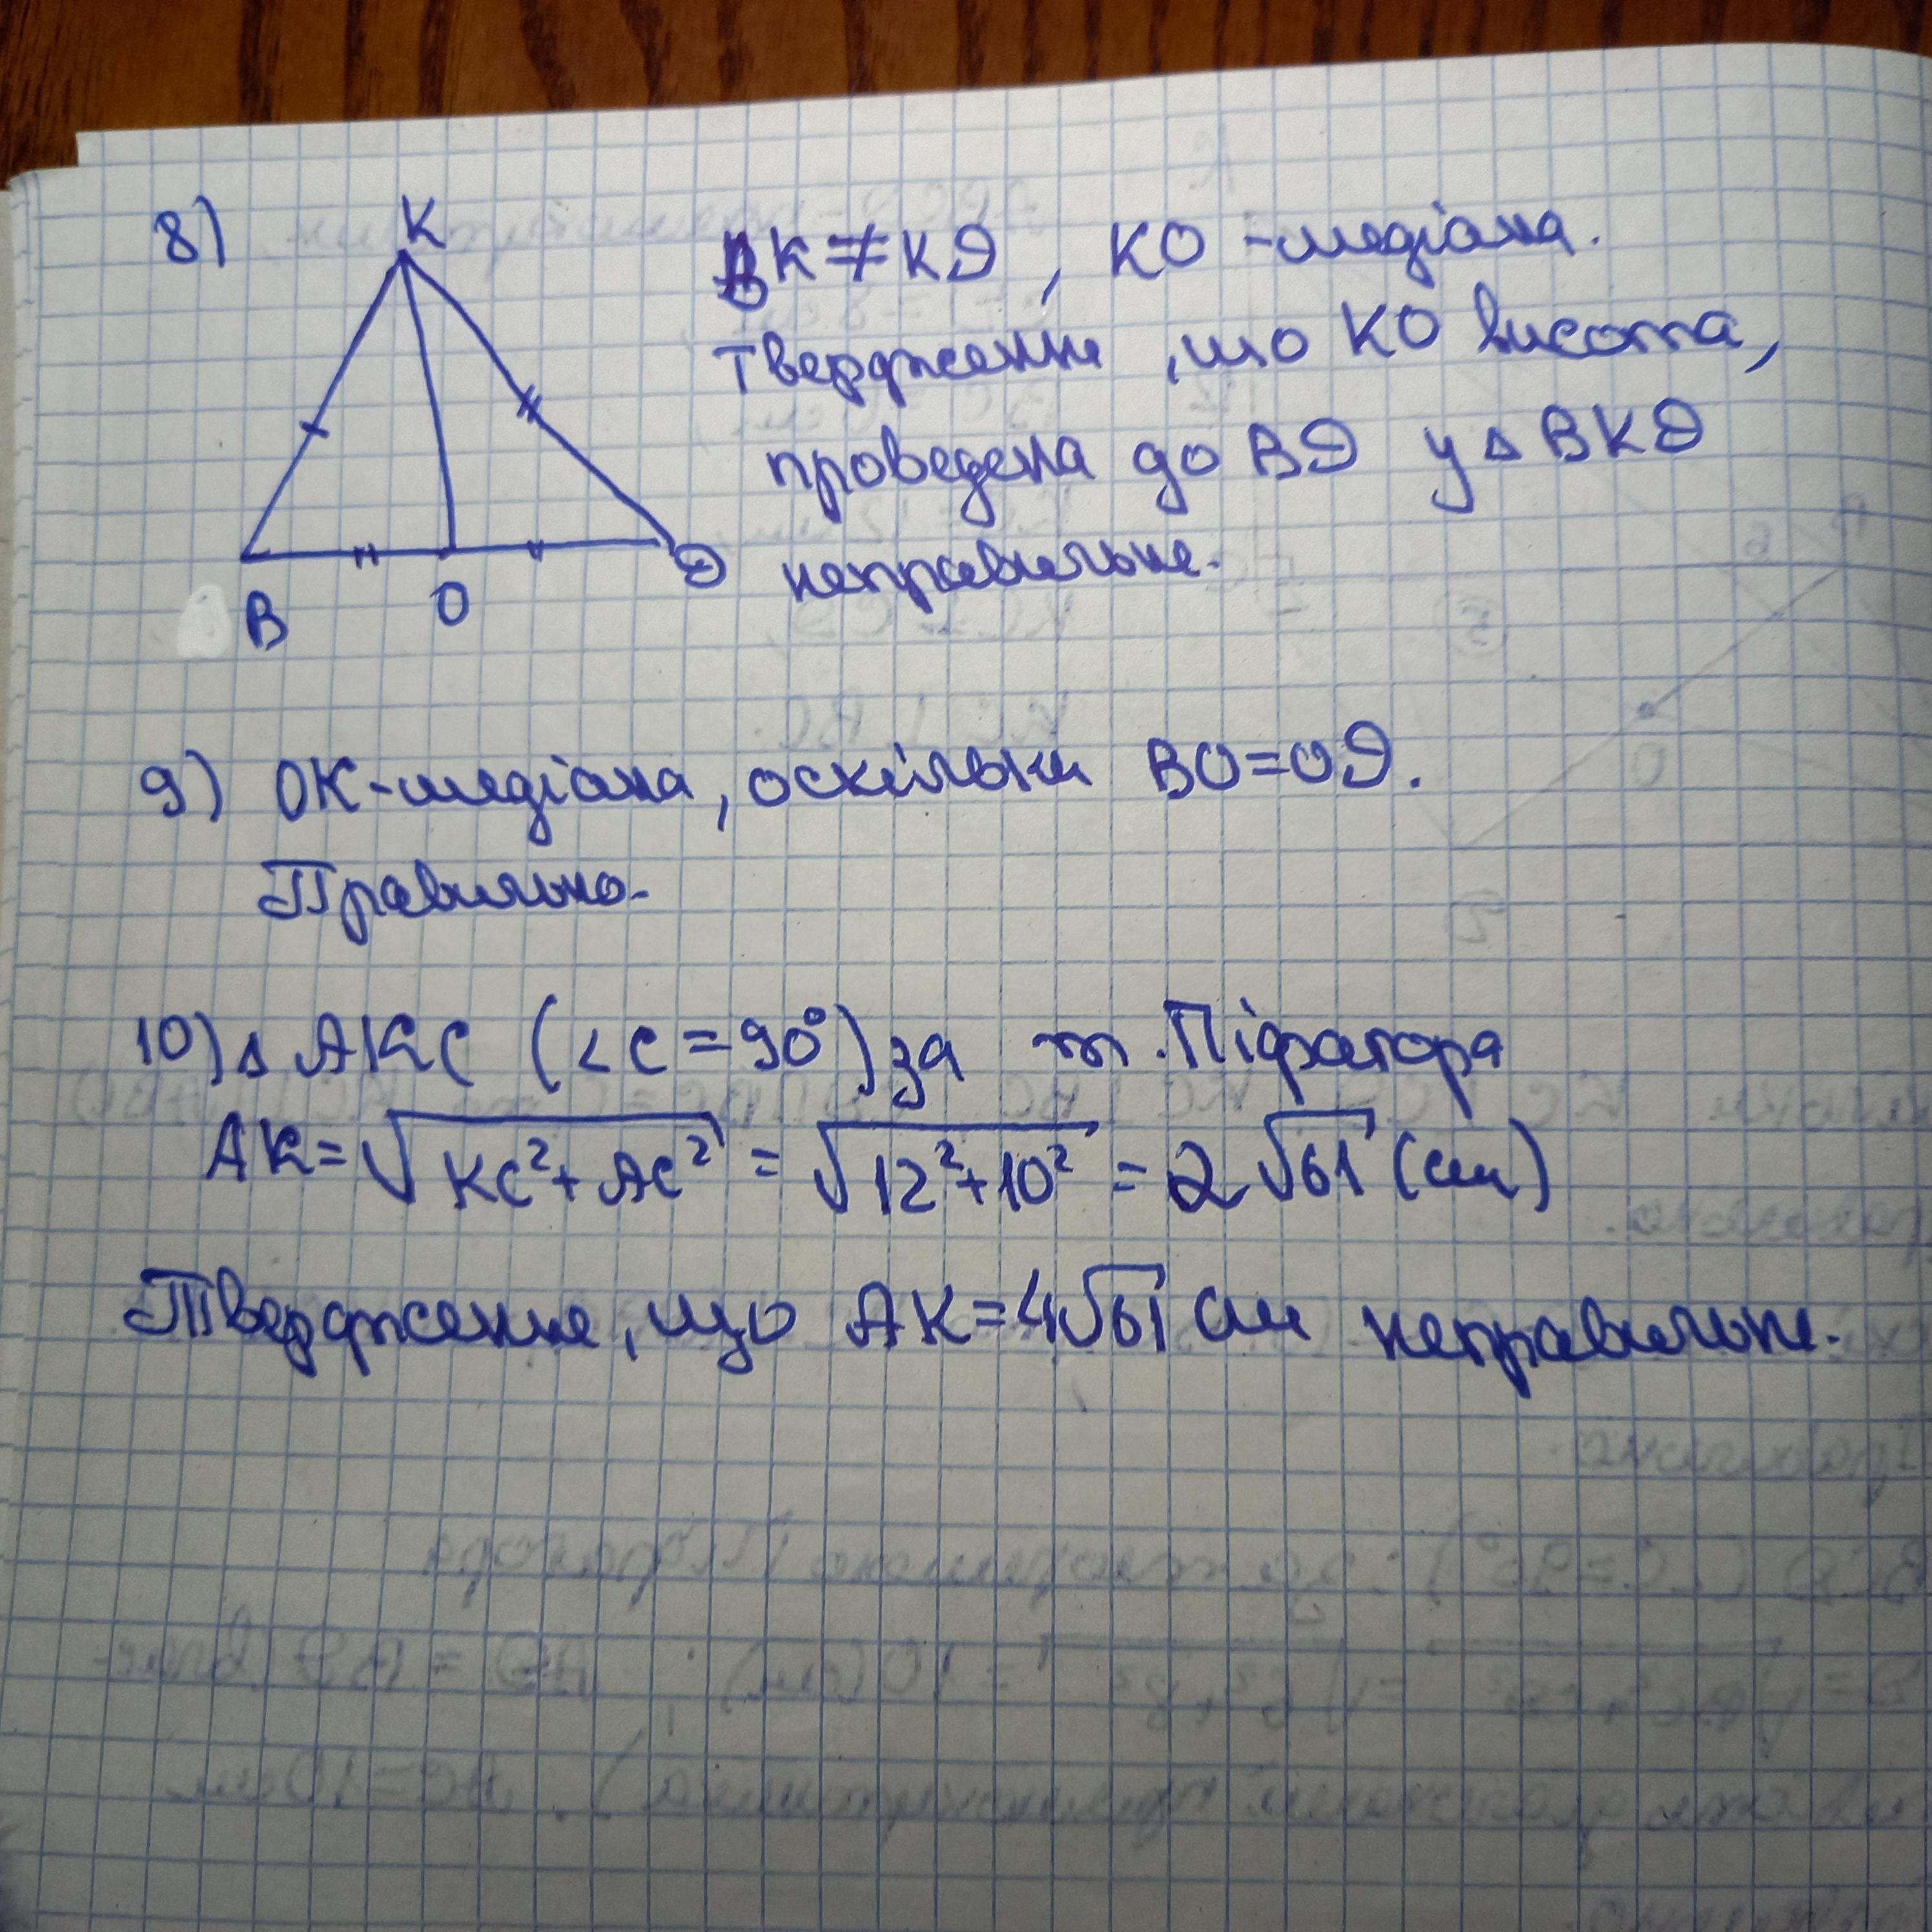 8)
K
B
O
D
BK≠KD, KO - медіана.
твердження, що KO висота,
проведена до BD у △BKD
неправильне.
9) OK-медіана, оскільки BO=OD.
Правильно.
10) △ AKC (∠C=90°) за т. Піфагора
AK=√KC²+AC² = √12²+10² = 2√61 (см)
Твердження, що AK=4√61 см неправильне.